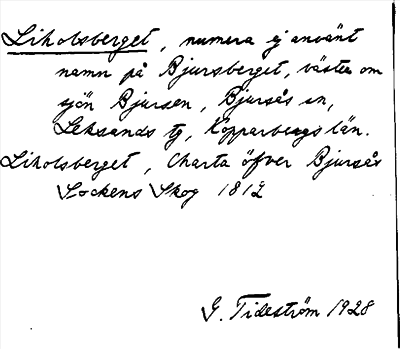 Liholsberget, numera ej använt
namn på Bjursberget, väster om
sjön Bjursen, Bjursås sn,
Leksands tg, Kopparbergs län.
Liholsberget, Charta öfver Bjursås
Sockens Skog 1812
G. Tideström 1928